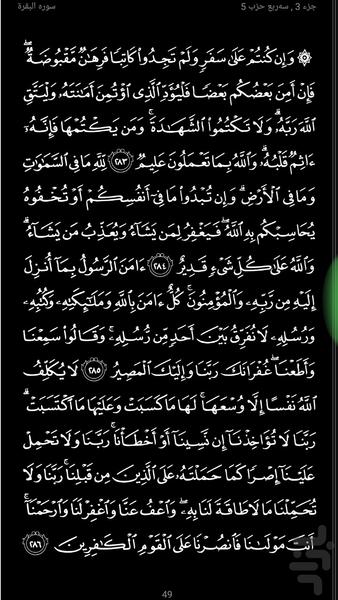 جزء 3 , سه‌ربع حزب 5
سوره البقرة
۞ وَإِن كُنتُمْ عَلَىٰ سَفَرٍ وَلَمْ تَجِدُوا۟ كَاتِبًا فَرِهَـٰنٌ مَّقْبُوضَةٌ ۖ
فَإِنْ أَمِنَ بَعْضُكُم بَعْضًا فَلْيُؤَدِّ ٱلَّذِى ٱؤْتُمِنَ أَمَـٰنَتَهُۥ وَلْيَتَّقِ
ٱللَّهَ رَبَّهُۥ ۗ وَلَا تَكْتُمُوا۟ ٱلشَّهَـٰدَةَ ۚ وَمَن يَكْتُمْهَا فَإِنَّهُۥٓ
ءَاثِمٌ قَلْبُهُۥ ۗ وَٱللَّهُ بِمَا تَعْمَلُونَ عَلِيمٌ ﴿٢٨٣﴾ لِّلَّهِ مَا فِى ٱلسَّمَـٰوَٰتِ
وَمَا فِى ٱلْأَرْضِ ۗ وَإِن تُبْدُوا۟ مَا فِىٓ أَنفُسِكُمْ أَوْ تُخْفُوهُ
يُحَاسِبْكُم بِهِ ٱللَّهُ ۖ فَيَغْفِرُ لِمَن يَشَآءُ وَيُعَذِّبُ مَن يَشَآءُ ۗ
وَٱللَّهُ عَلَىٰ كُلِّ شَىْءٍ قَدِيرٌ ﴿٢٨٤﴾ ءَامَنَ ٱلرَّسُولُ بِمَآ أُنزِلَ
إِلَيْهِ مِن رَّبِّهِۦ وَٱلْمُؤْمِنُونَ ۚ كُلٌّ ءَامَنَ بِٱللَّهِ وَمَلَـٰٓئِكَتِهِۦ وَكُتُبِهِۦ
وَرُسُلِهِۦ لَا نُفَرِّقُ بَيْنَ أَحَدٍ مِّن رُّسُلِهِۦ ۚ وَقَالُوا۟ سَمِعْنَا
وَأَطَعْنَا ۖ غُفْرَانَكَ رَبَّنَا وَإِلَيْكَ ٱلْمَصِيرُ ﴿٢٨٥﴾ لَا يُكَلِّفُ
ٱللَّهُ نَفْسًا إِلَّا وُسْعَهَا ۚ لَهَا مَا كَسَبَتْ وَعَلَيْهَا مَا ٱكْتَسَبَتْ ۗ
رَبَّنَا لَا تُؤَاخِذْنَآ إِن نَّسِينَآ أَوْ أَخْطَأْنَا ۚ رَبَّنَا وَلَا تَحْمِلْ
عَلَيْنَآ إِصْرًا كَمَا حَمَلْتَهُۥ عَلَى ٱلَّذِينَ مِن قَبْلِنَا ۚ رَبَّنَا وَلَا
تُحَمِّلْنَا مَا لَا طَاقَةَ لَنَا بِهِۦ ۖ وَٱعْفُ عَنَّا وَٱغْفِرْ لَنَا وَٱرْحَمْنَآ ۚ
أَنتَ مَوْلَىٰنَا فَٱنصُرْنَا عَلَى ٱلْقَوْمِ ٱلْكَـٰفِرِينَ ﴿٢٨٦﴾
49